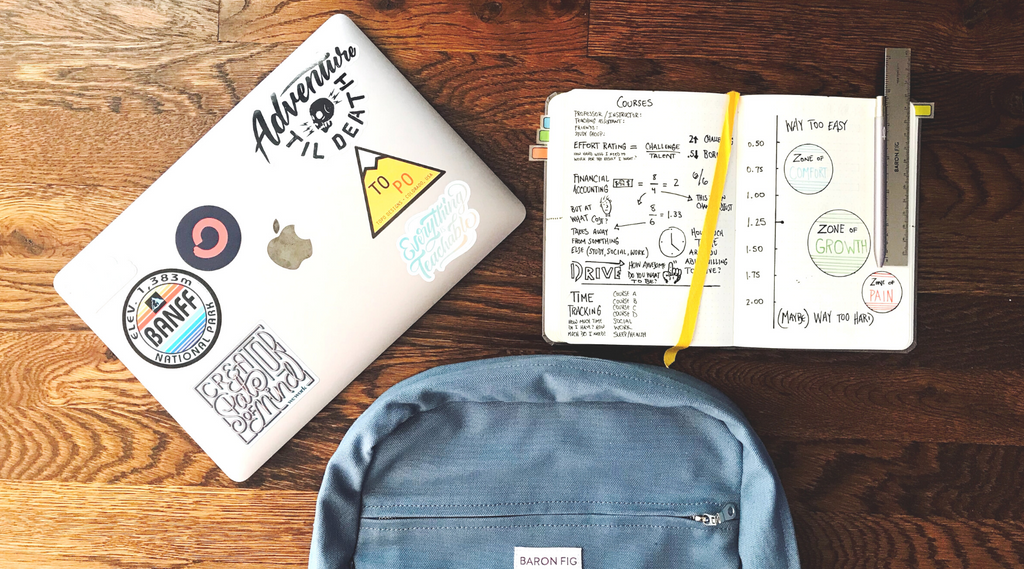 Adventure
TIL DEATH
TO PO
Everything
is
Teachable
ELEV. 1,383m
BANFF
NATIONAL PARK
CREATOR
State
OF Mind
COURSES
PROFESSOR / INSTRUCTOR:
TEACHING ASSISTANT:
FRIENDS:
STUDY GROUP:
EFFORT RATING = CHALLENGE
TALENT
2↑
.5↓
FINANCIAL
ACCOUNTING
= 8
4
= 2
6/6
BUT AT
WHAT COST?
8
6
= 1.33
TAKES AWAY
FROM SOMETHING
ELSE (STUDY, SOCIAL, WORK)
DRIVE
HOW AWESOME
DO YOU WANT
TO BE?
TIME
TRACKING
HOW MUCH TIME
DO I HAVE? HOW
MUCH DO I NEED?
COURSE A
COURSE B
COURSE C
COURSE D
SOCIAL
WORK
SLEEP/HEALTH
WAY TOO EASY
0.50
0.75
1.00
1.25
1.50
1.75
2.00
ZONE OF
COMFORT
ZONE OF
GROWTH
ZONE OF
PAIN
(MAYBE) WAY TOO HARD
BARON FIG
BARON FIG